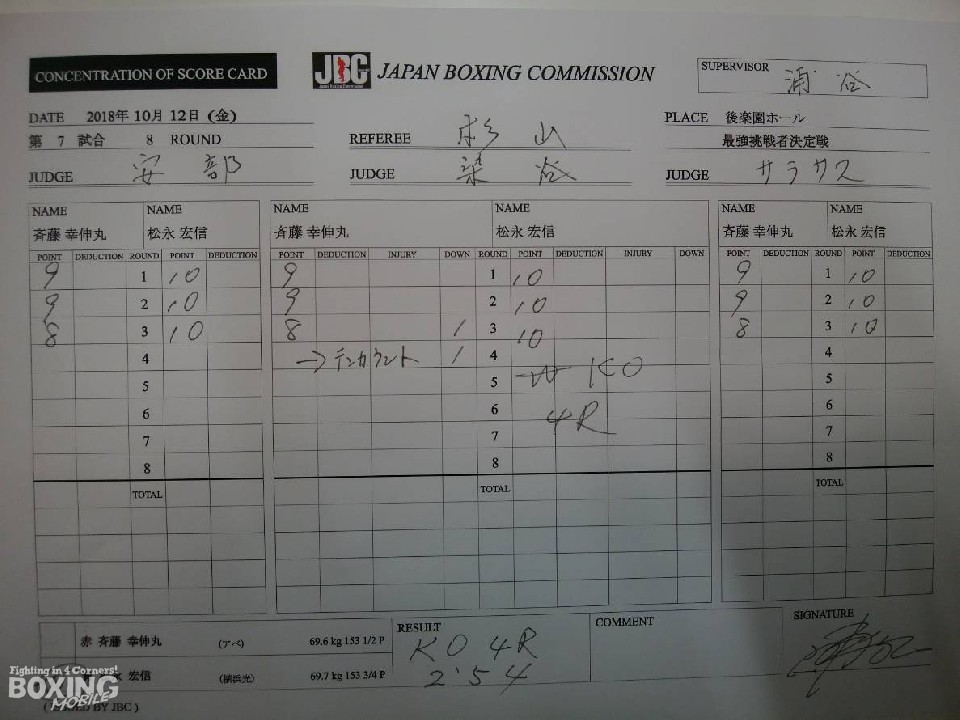 CONCENTRATION OF SCORE CARD
JBC JAPAN BOXING COMMISSION
SUPERVISOR 浦谷
DATE 2018年 10月 12日 (金)
PLACE 後楽園ホール
第 7 試合 8 ROUND
REFEREE 杉山
最強挑戦者決定戦
JUDGE 安部
JUDGE 染谷
JUDGE サラサス
NAME NAME NAME NAME NAME NAME
斉藤 幸伸丸 松永 宏信 斉藤 幸伸丸 松永 宏信 斉藤 幸伸丸 松永 宏信
POINT DEDUCTION ROUND POINT DEDUCTION POINT DEDUCTION INJURY DOWN ROUND POINT DEDUCTION INJURY DOWN POINT DEDUCTION ROUND POINT DEDUCTION
9 1 10 9 1 10 9 1 10
9 2 10 9 2 10 9 2 10
8 3 10 8 1 3 10 8 3 10
4 →テンカウント 1 4 4
5 5 KO 5
6 6 4R 6
7 7 7
8 8 8
TOTAL TOTAL TOTAL
赤 斉藤 幸伸丸 (アベ) 69.6 kg 153 1/2 P
永 宏信 (横浜光) 69.7 kg 153 3/4 P
RESULT
KO 4R
2'54
COMMENT
SIGNATURE
Fighting in 4 Corners!
BOXING
MOBILE
BY JBC )